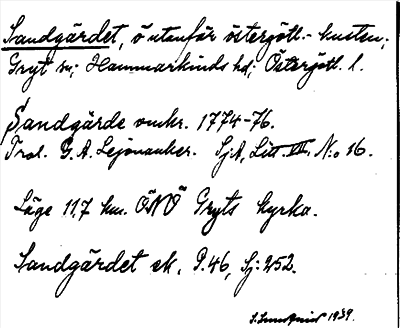 Sandgärdet, ö utanför östergötl.- kusten;
Gryt sn; Hammarkinds hd; Östergötl. l.
Sandgärde omkr. 1774-76.
Trol. G. A. Lejonanker. SjA, Litt III. N:o 16.
Läge 11,7 km. ÖNÖ Gryts kyrka.
Sandgärdet ek. P.46, Sj: 252.
1939.